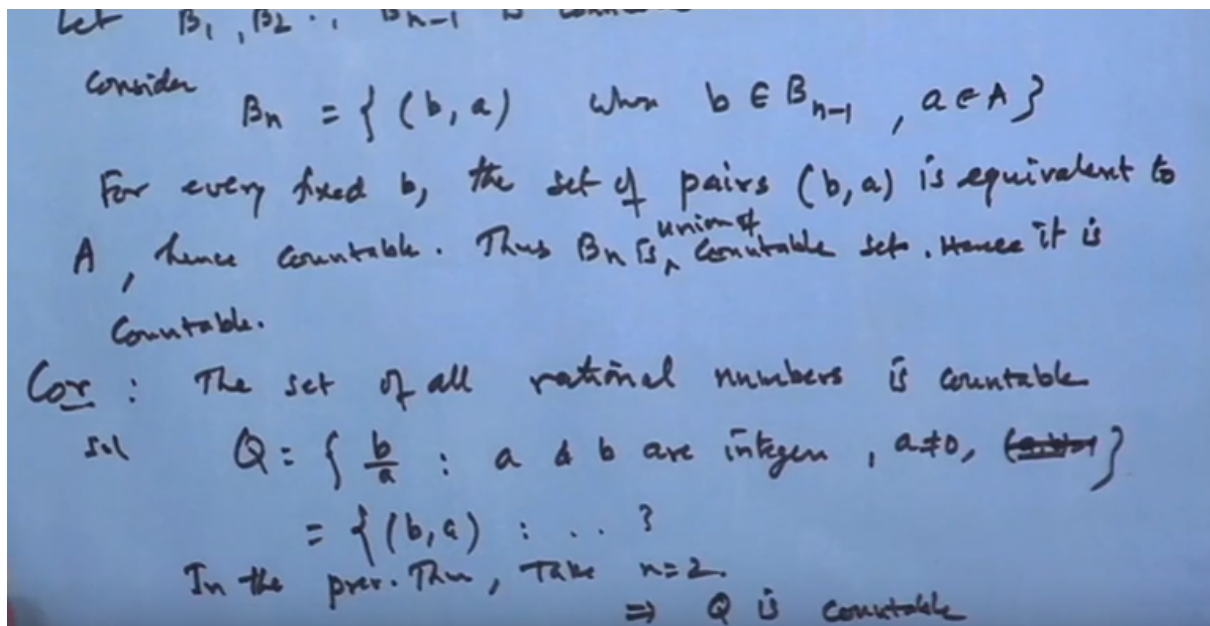 Let B1, B2 .., Bn-1 is
Consider
Bn = { (b, a) when b ∈ Bn-1 , a ∈ A }
For every fixed b, the set of pairs (b, a) is equivalent to
A, hence countable. Thus Bn is union of countable sets. Hence it is
Countable.
Cor : The set of all rational numbers is countable
Sol Q = { b/a : a & b are integers, a≠0, }
= { (b, a) : ... }
In the prev. Thm, Take n=2.
⇒ Q is countable